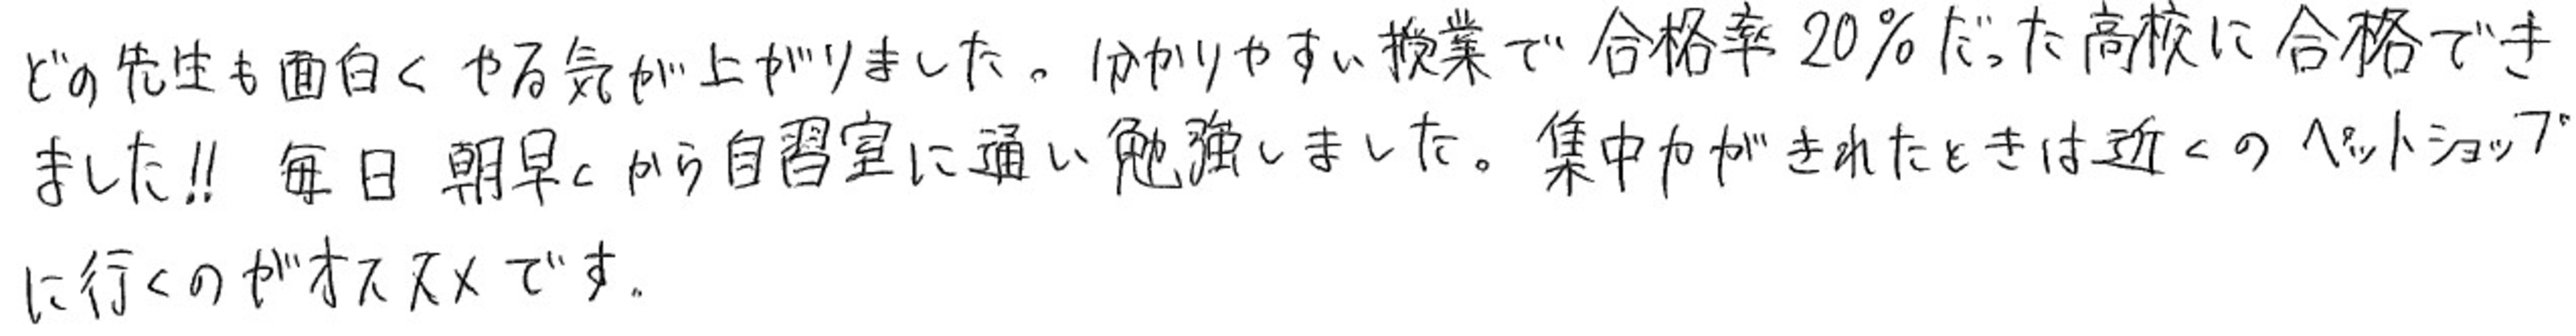 どの先生も面白くやる気が上がりました。分かりやすい授業で合格率20%だった高校に合格でき
ました!! 毎日朝早くから自習室に通い勉強しました。集中力がきれたときは近くのペットショップ
に行くのがオススメです。